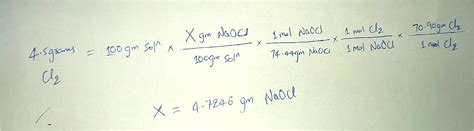 4.5grams Cl₂ = 100gm Solⁿ × X gm NaOCl / 100gm Solⁿ × 1 mol NaOCl / 74.44gm NaOCl × 1 mol Cl₂ / 1 mol NaOCl × 70.90gm Cl₂ / 1 mol Cl₂
X = 4.7246 gm NaOCl